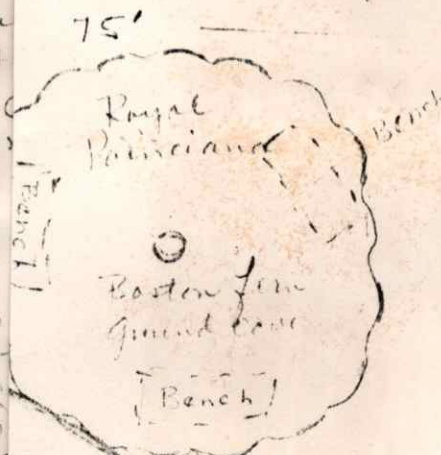 75'
Royal
Poinciana
Bench
Bench
Boston fern
ground cover
Bench